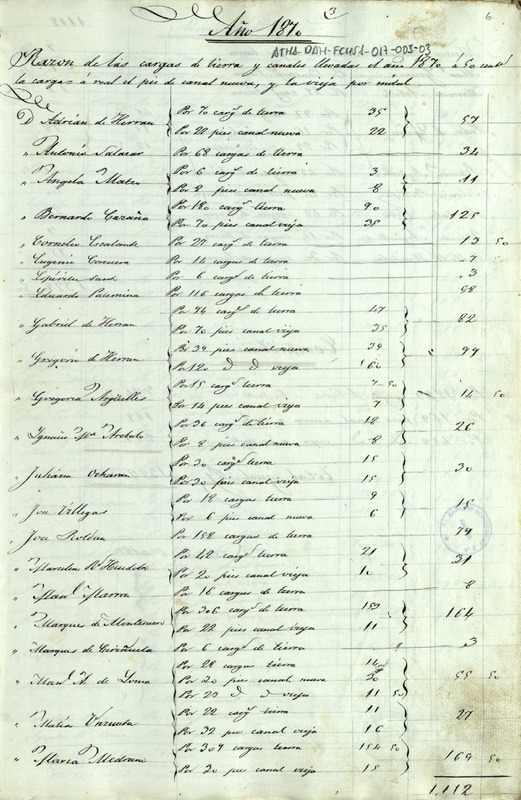 3
6
Año 1870
ATHA-DAH-FCHSA-017-003-03
Razon de las cargas de tierra y canales llevadas el año 1870 á 50 centˢ
la carga = á real el pie de canal nueva, y la vieja por mitad
D Adrian de Herran Por 70 cargˢ de tierra 35
Por 22 pies canal nueva 22 57
" Antonio Salazar Por 68 cargas de tierra 34
" Angela Matra Por 6 cargˢ de tierra 3
Por 8 pies canal nueva 8 11
" Bernardo Por 180 cargˢ tierra 90
Por 70 pies canal vieja 35 125
" Cornelio Por 27 cargˢ de tierra 13 50
" Eugenio Corcuera Por 14 cargas de tierra 7
" Por 6 cargˢ de tierra 3
" Eduardo Por 116 cargas de tierra 58
" Gabriel de Herran Por 94 cargˢ de tierra 47
Por 70 pies canal vieja 35 82
" Gregorio de Herran Por 39 pies canal nueva 39
Por 120 d d vieja 60 99
" Gregoria Argüelles Por 15 cargˢ tierra 7 50
Por 14 pies canal vieja 7 14 50
" Ignacio Mª Arobalo Por 36 cargˢ de tierra 18
Por 8 pies canal nueva 8 26
" Juliana Por 30 cargˢ tierra 15
Por 30 pies canal vieja 15 30
" Jon Villegas Por 18 cargas tierra 9
Por 6 pies canal nueva 6 15
" Jose Roldan Por 158 cargas de tierra 79
" Por 42 cargˢ tierra 21
Por 20 pies canal vieja 10 31
" Manˡ Marron Por 16 cargas de tierra 8
" Marques de Montesuer Por 306 cargˢ de tierra 153
Por 22 pies canal vieja 11 164
" Marques de Cirizuela Por 6 cargˢ de tierra 3
" Manˡ A. de Loma Por 28 cargas tierra 14
Por 20 pies canal nueva
Por 23 d d vieja 11 50 55 50
" Matias Por 22 cargˢ tierra 11
Por 32 pies canal vieja 16 27
" Maria Medrano Por 309 cargas tierra 154 50
Por 30 pies canal vieja 15 169 50
1.112